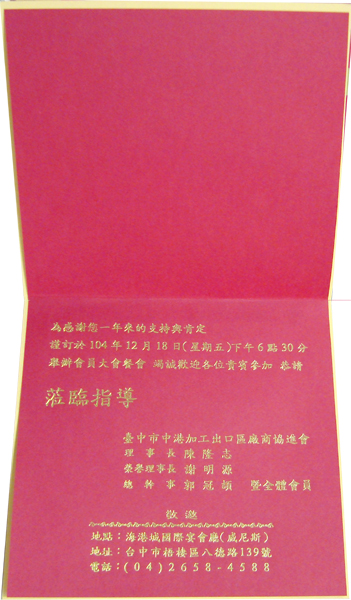 為感謝您一年來的支持與肯定
謹訂於104年12月18日(星期五)下午6點30分
舉辦會員大會餐會 竭誠歡迎各位貴賓參加 恭請
蒞臨指導
臺中市中港加工出口區廠商協進會
理事長陳隆志
榮譽理事長謝明源
總幹事郭冠頡 暨全體會員
敬邀
地點：海港城國際宴會廳(威尼斯)
地址：台中市梧棲區八德路139號
電話：(04)2658-4588